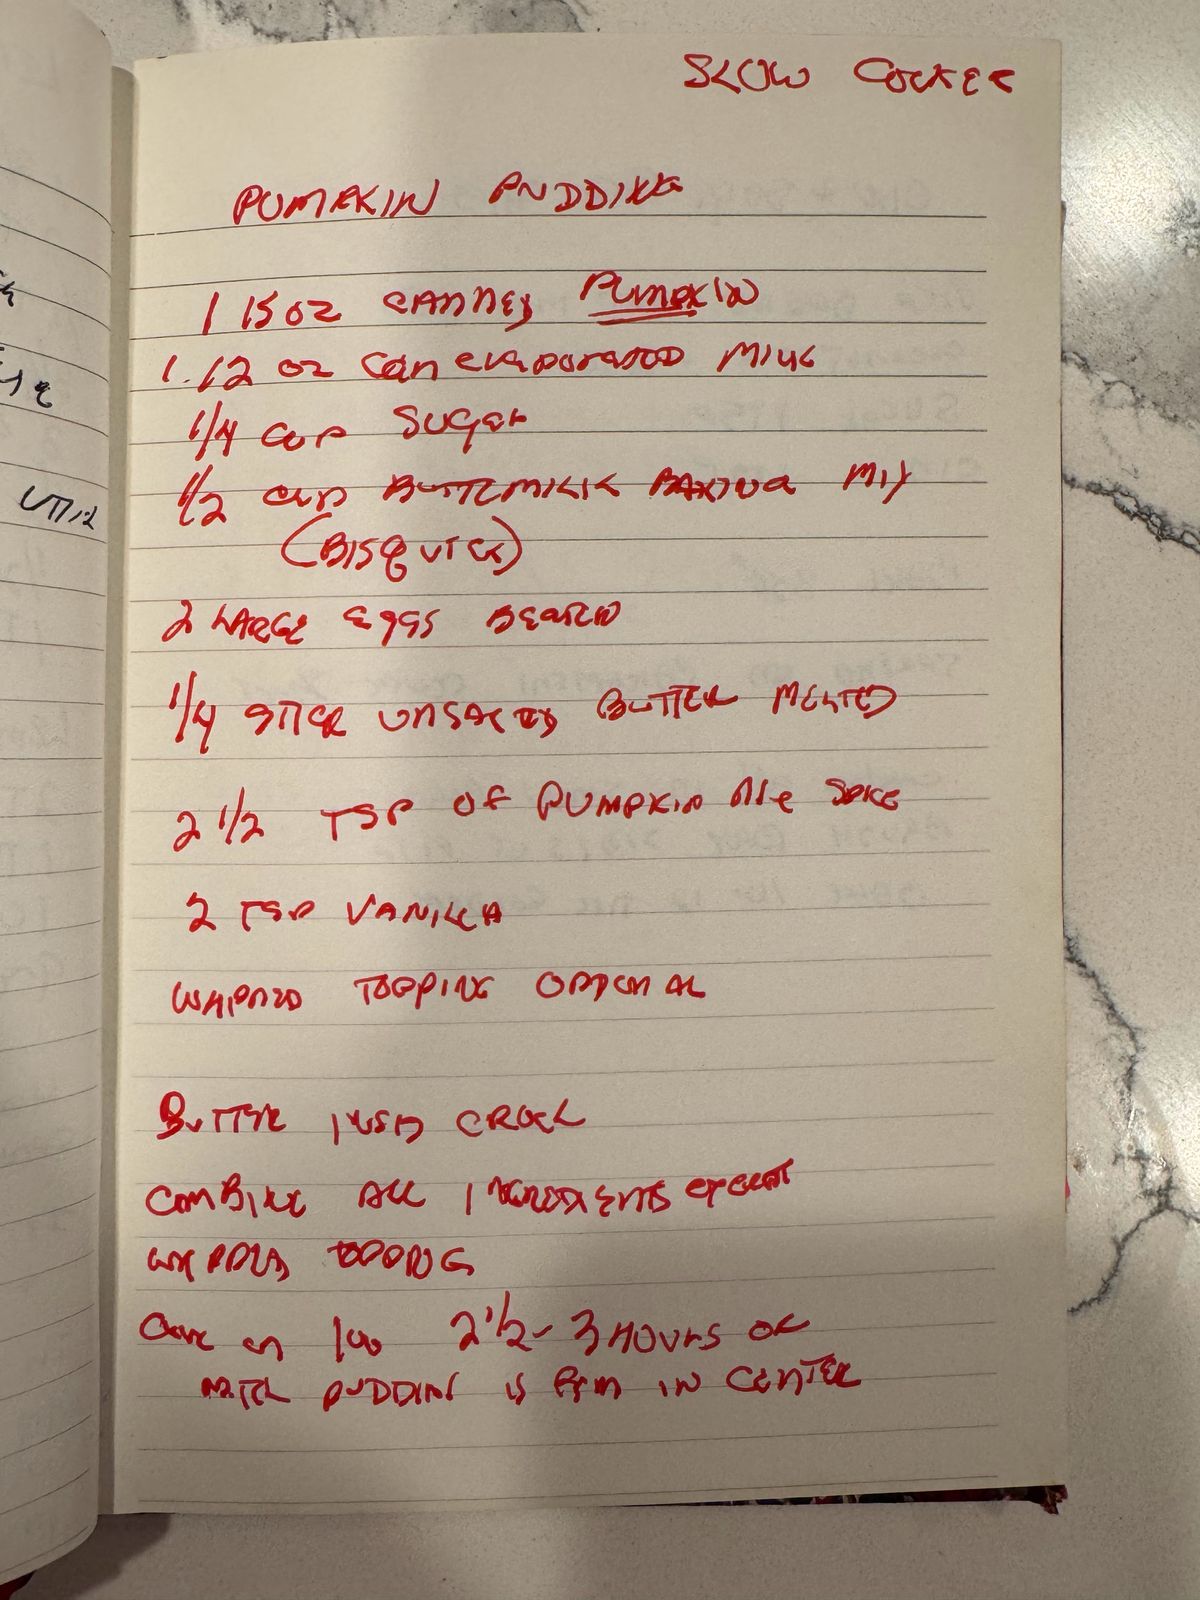 SLOW COOKER
PUMPKIN PUDDING
1 15 oz CANNED PUMPKIN
1. 12 oz Can evaporated MILK
1/4 cup SUGER
1/2 cup BUTTERMILK BAKING MIX
(BISQUICK)
2 LARGE Eggs BEATEN
1/4 STICK UNSALTED BUTTER MELTED
2 1/2 TSP OF PUMPKIN PIE SPICE
2 TSP VANILLA
WHIPPED TOPPING OPTIONAL
BUTTER INSID CROCK
COMBINE ALL INGREDIENTS EXCEPT
WHIPPED TOPPING
COOK on low 2 1/2 - 3 HOURS OR
UNTIL PUDDING IS FIRM IN CENTER